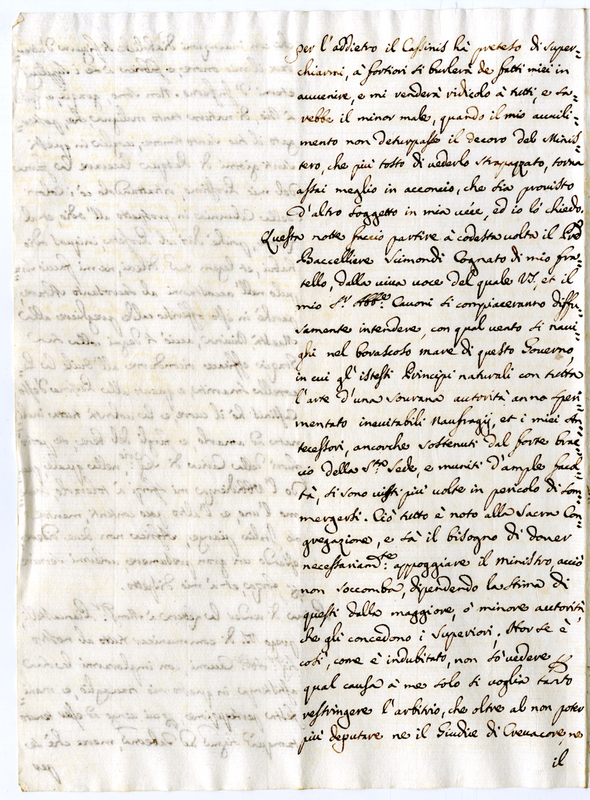 per l'addietro il Cassinis hà preteso di super-
chiarmi, à fortiori si burlerà de fatti miei in
avvenire, e mi renderà ridicolo à tutti, e sa-
rebbe il minor male, quando il mio avvili-
mento non deturpasse il decoro del Minis-
tero, che più tosto di vederlo strapazzato, torna
assai meglio in acconcio, che sia provisto
d'altro soggetto in mia véce, ed io lo chiedo.
Questa notte faccio partire à codesta volta il
Baccelliere Simondi Cognato di mio fra-
tello, dalla viva voce del quale VS. et il
mio Sr. Abbe. Cavoni si compiaceranno diffu-
samente intendere, con qual vento si navi-
ghi nel borascoso mare di questo Governo,
in cui gl'istessi Principi naturali con tutta
l'arte d'una sovrana autorità anno speri-
mentato inevitabili Naufragij, et i miei An-
tecessori, ancorche sostenuti dal forte brac-
cio della Sta. Sede, e muniti d'ample facol-
tà, si sono visti più volte in pericolo di som-
mergersi. Ciò tutto è noto alla Sacra Con-
gregazione, e sà il bisogno di dover
necessariamte. appoggiare il ministro, acciò
non soccomba, dipendendo la stima di
questi dalla maggiore, ò minore autorità,
che gli concedono i Superiori. Hor se è
così, come è indubitato, non sò vedere
qual causa à me solo si voglia tanto
restringere l'arbitrio, che oltre al non poter
più deputare ne il Giudice di Crevacore, ne
il